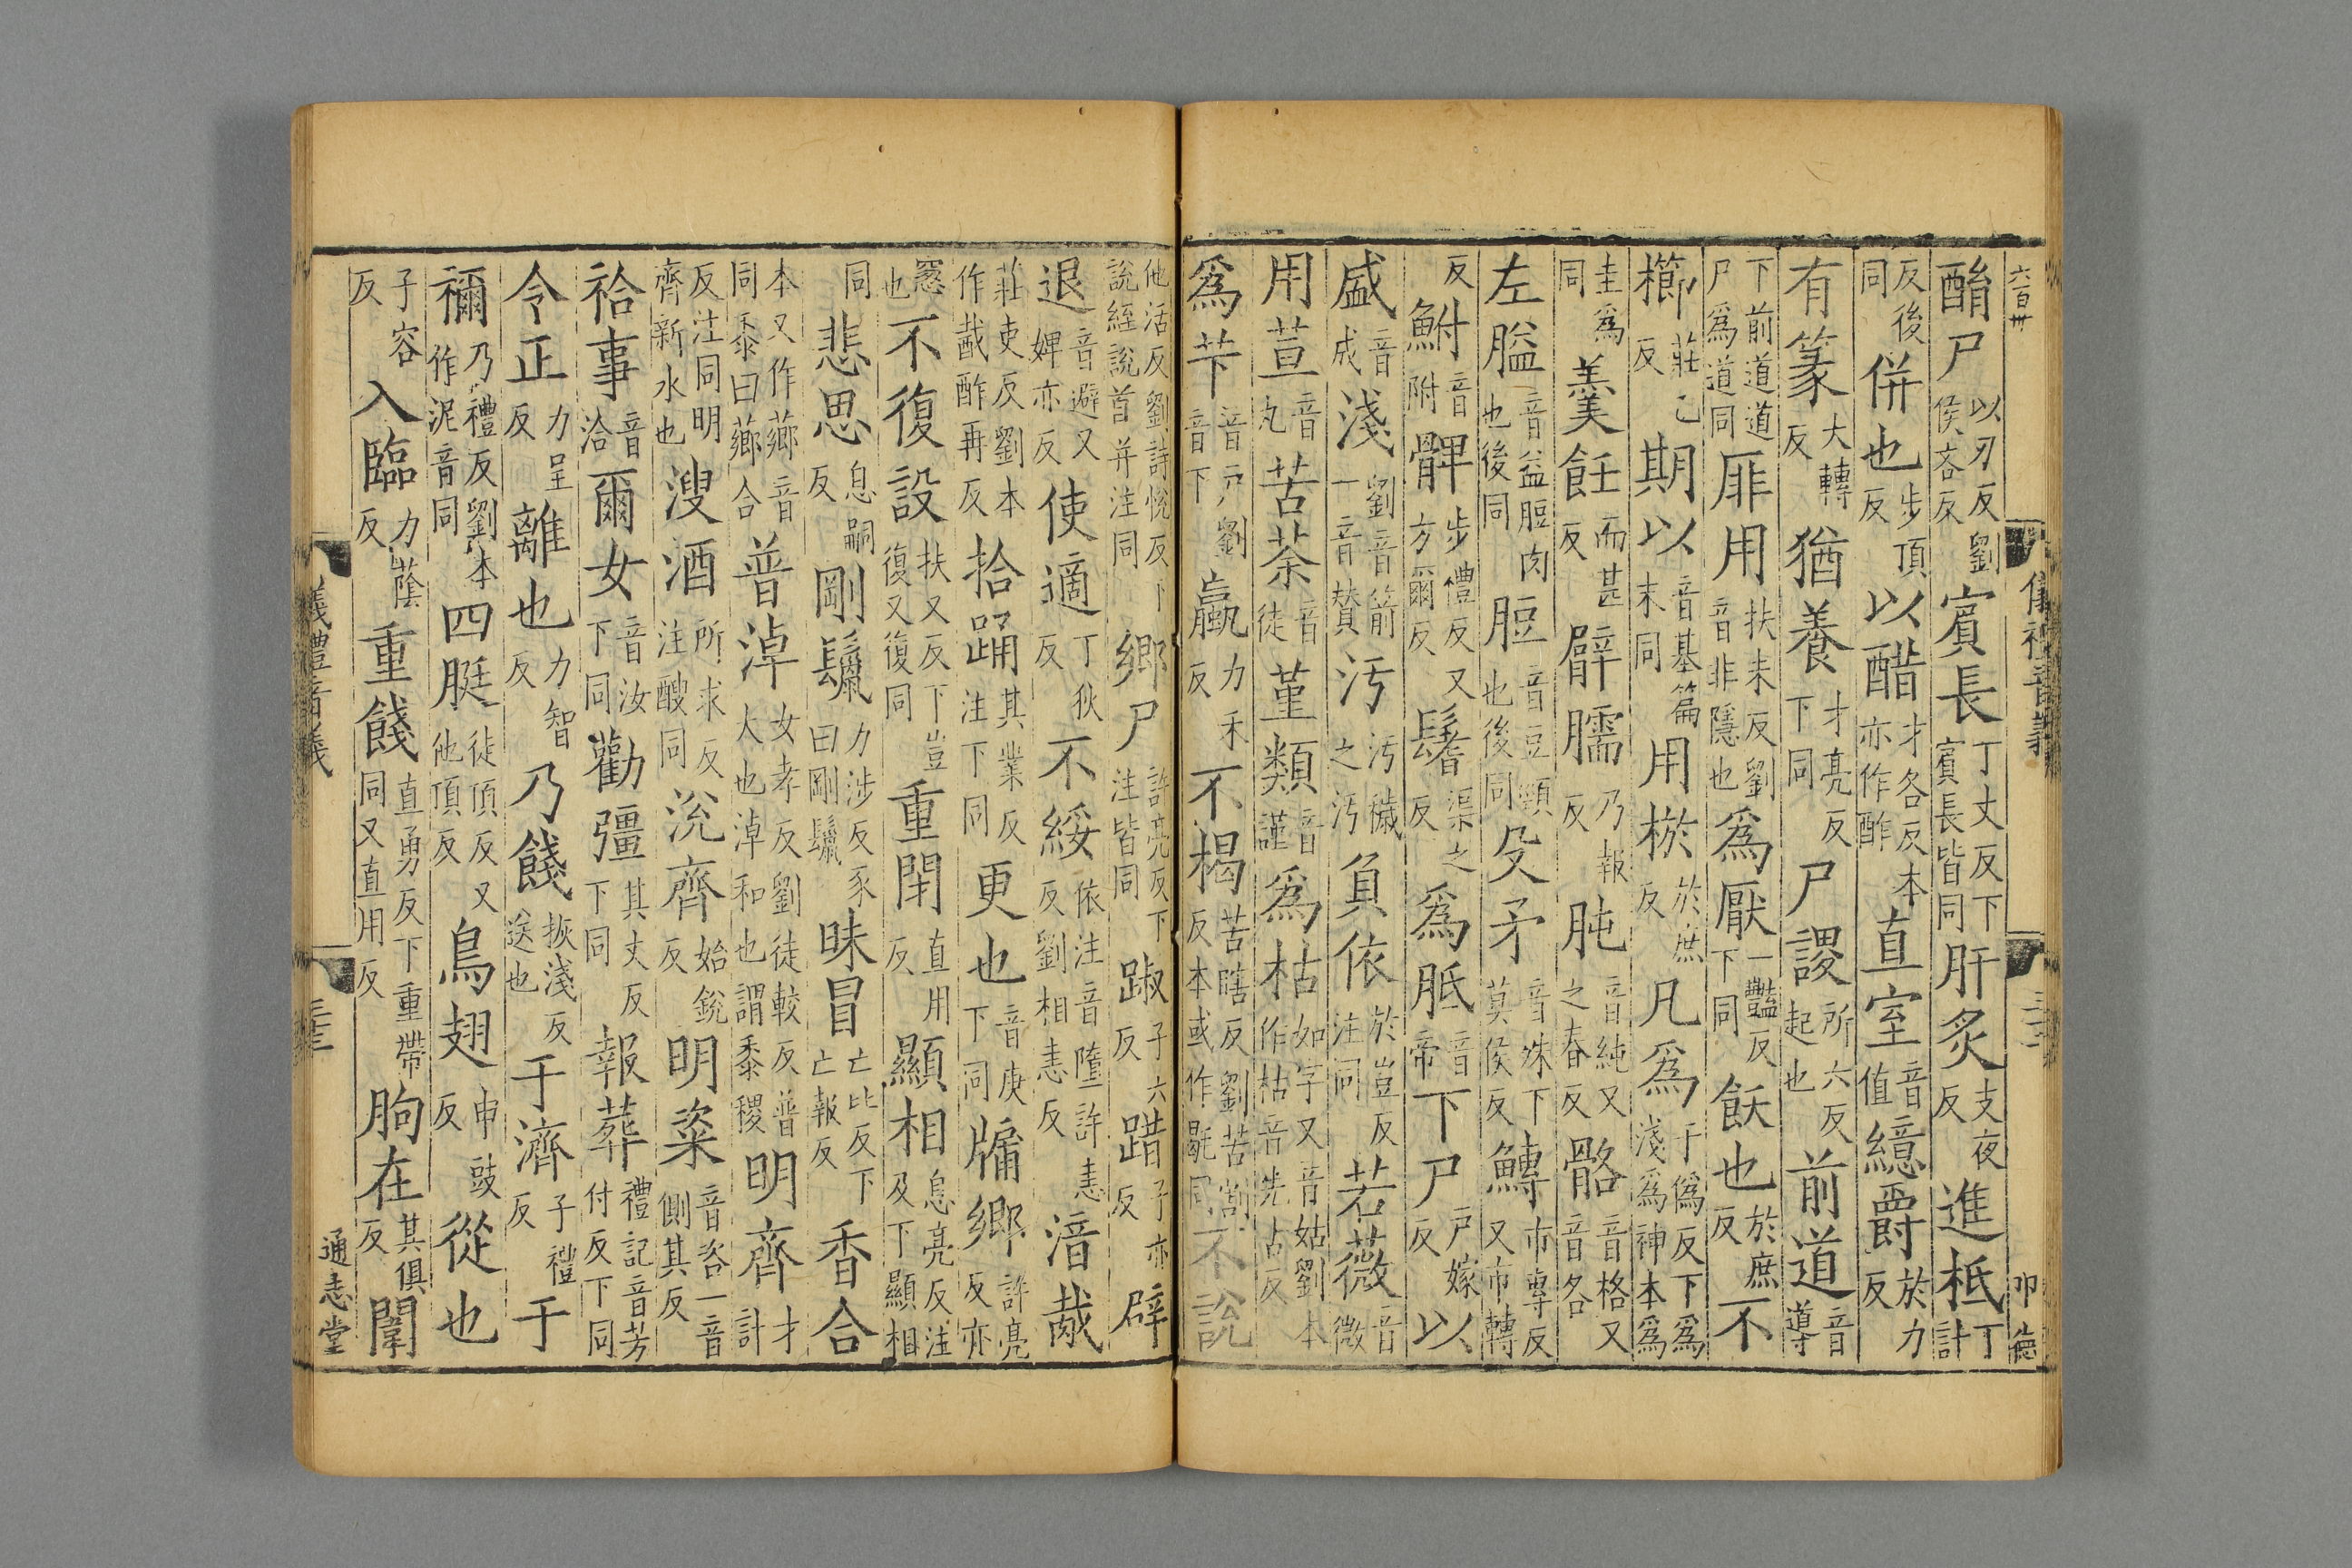 六百卅
儀禮音義
卬 德
酳尸以刃反劉侯吝反賓長丁丈反下賓長皆同肝炙支夜反進柢丁計
反後同併也步頂反以醋才各反本亦作酢直室音值繶爵於力反
有篆大轉反猶養才亮反下同尸謖所六反起也前道音導
下前道道尸為道同厞用扶未反劉音非隱也為厭一豔反下同飫也於庶反不
櫛莊乙反期以音基篇末同用棜於庶反凡為于偽反下為淺為神本為
圭為同羹飪而甚反臂臑乃報反肫音純又之春反骼音格又音各
左膉音益脰肉也後同脰音豆頸也後同殳矛音殊下莫侯反鱄巿專反又巿轉
反鮒音附髀步禮反又方爾反鬐渠之反為胝音帝下尸戶嫁反以
盛音成淺劉音箭一音贊汚汚穢之汚負依於豈反注同若薇音微
用荁音丸苦荼音徒堇類音謹為枯如字又音姑劉本作枯音先占反
為芐音戶劉音下蠃力禾反不楬苦瞎反劉苦割反本或作毼同不說
他活反劉詩悅反下說絰說首并注同鄉尸許亮反下注皆同踧子六反踖子亦反辟
退音避又婢亦反使適丁狄反不綏依注音隋許恚反劉相恚反湆胾
莊吏反劉本作酨酢再反拾踊其業反注下同更也音庚下同牖鄉許亮反亦
窻也不復設扶又反下豈復又復同重閉直用反顯相息亮反注及下顯相
同悲思息嗣反剛鬛力涉反豕曰剛鬛昧冒亡比反下亡報反香合
本又作薌音同黍曰薌合普淖女孝反劉徒較反普大也淖和也謂黍稷明齊才計
反注同明齊新水也溲酒所求反注醙同涗齊始銳反明粢音咨一音側其反
祫事音洽爾女音汝下同勸彊其丈反下同報葬禮記音芳付反下同
令正力呈反離也力智反乃餞扶淺反送也于濟子禮反于
禰乃禮反劉本作泥音同四脡徒頂反又他頂反鳥翅申豉反從也
子容反入臨力蔭反重餞直勇反下重帶同又直用反朐在其俱反闈
儀禮音義
通志堂